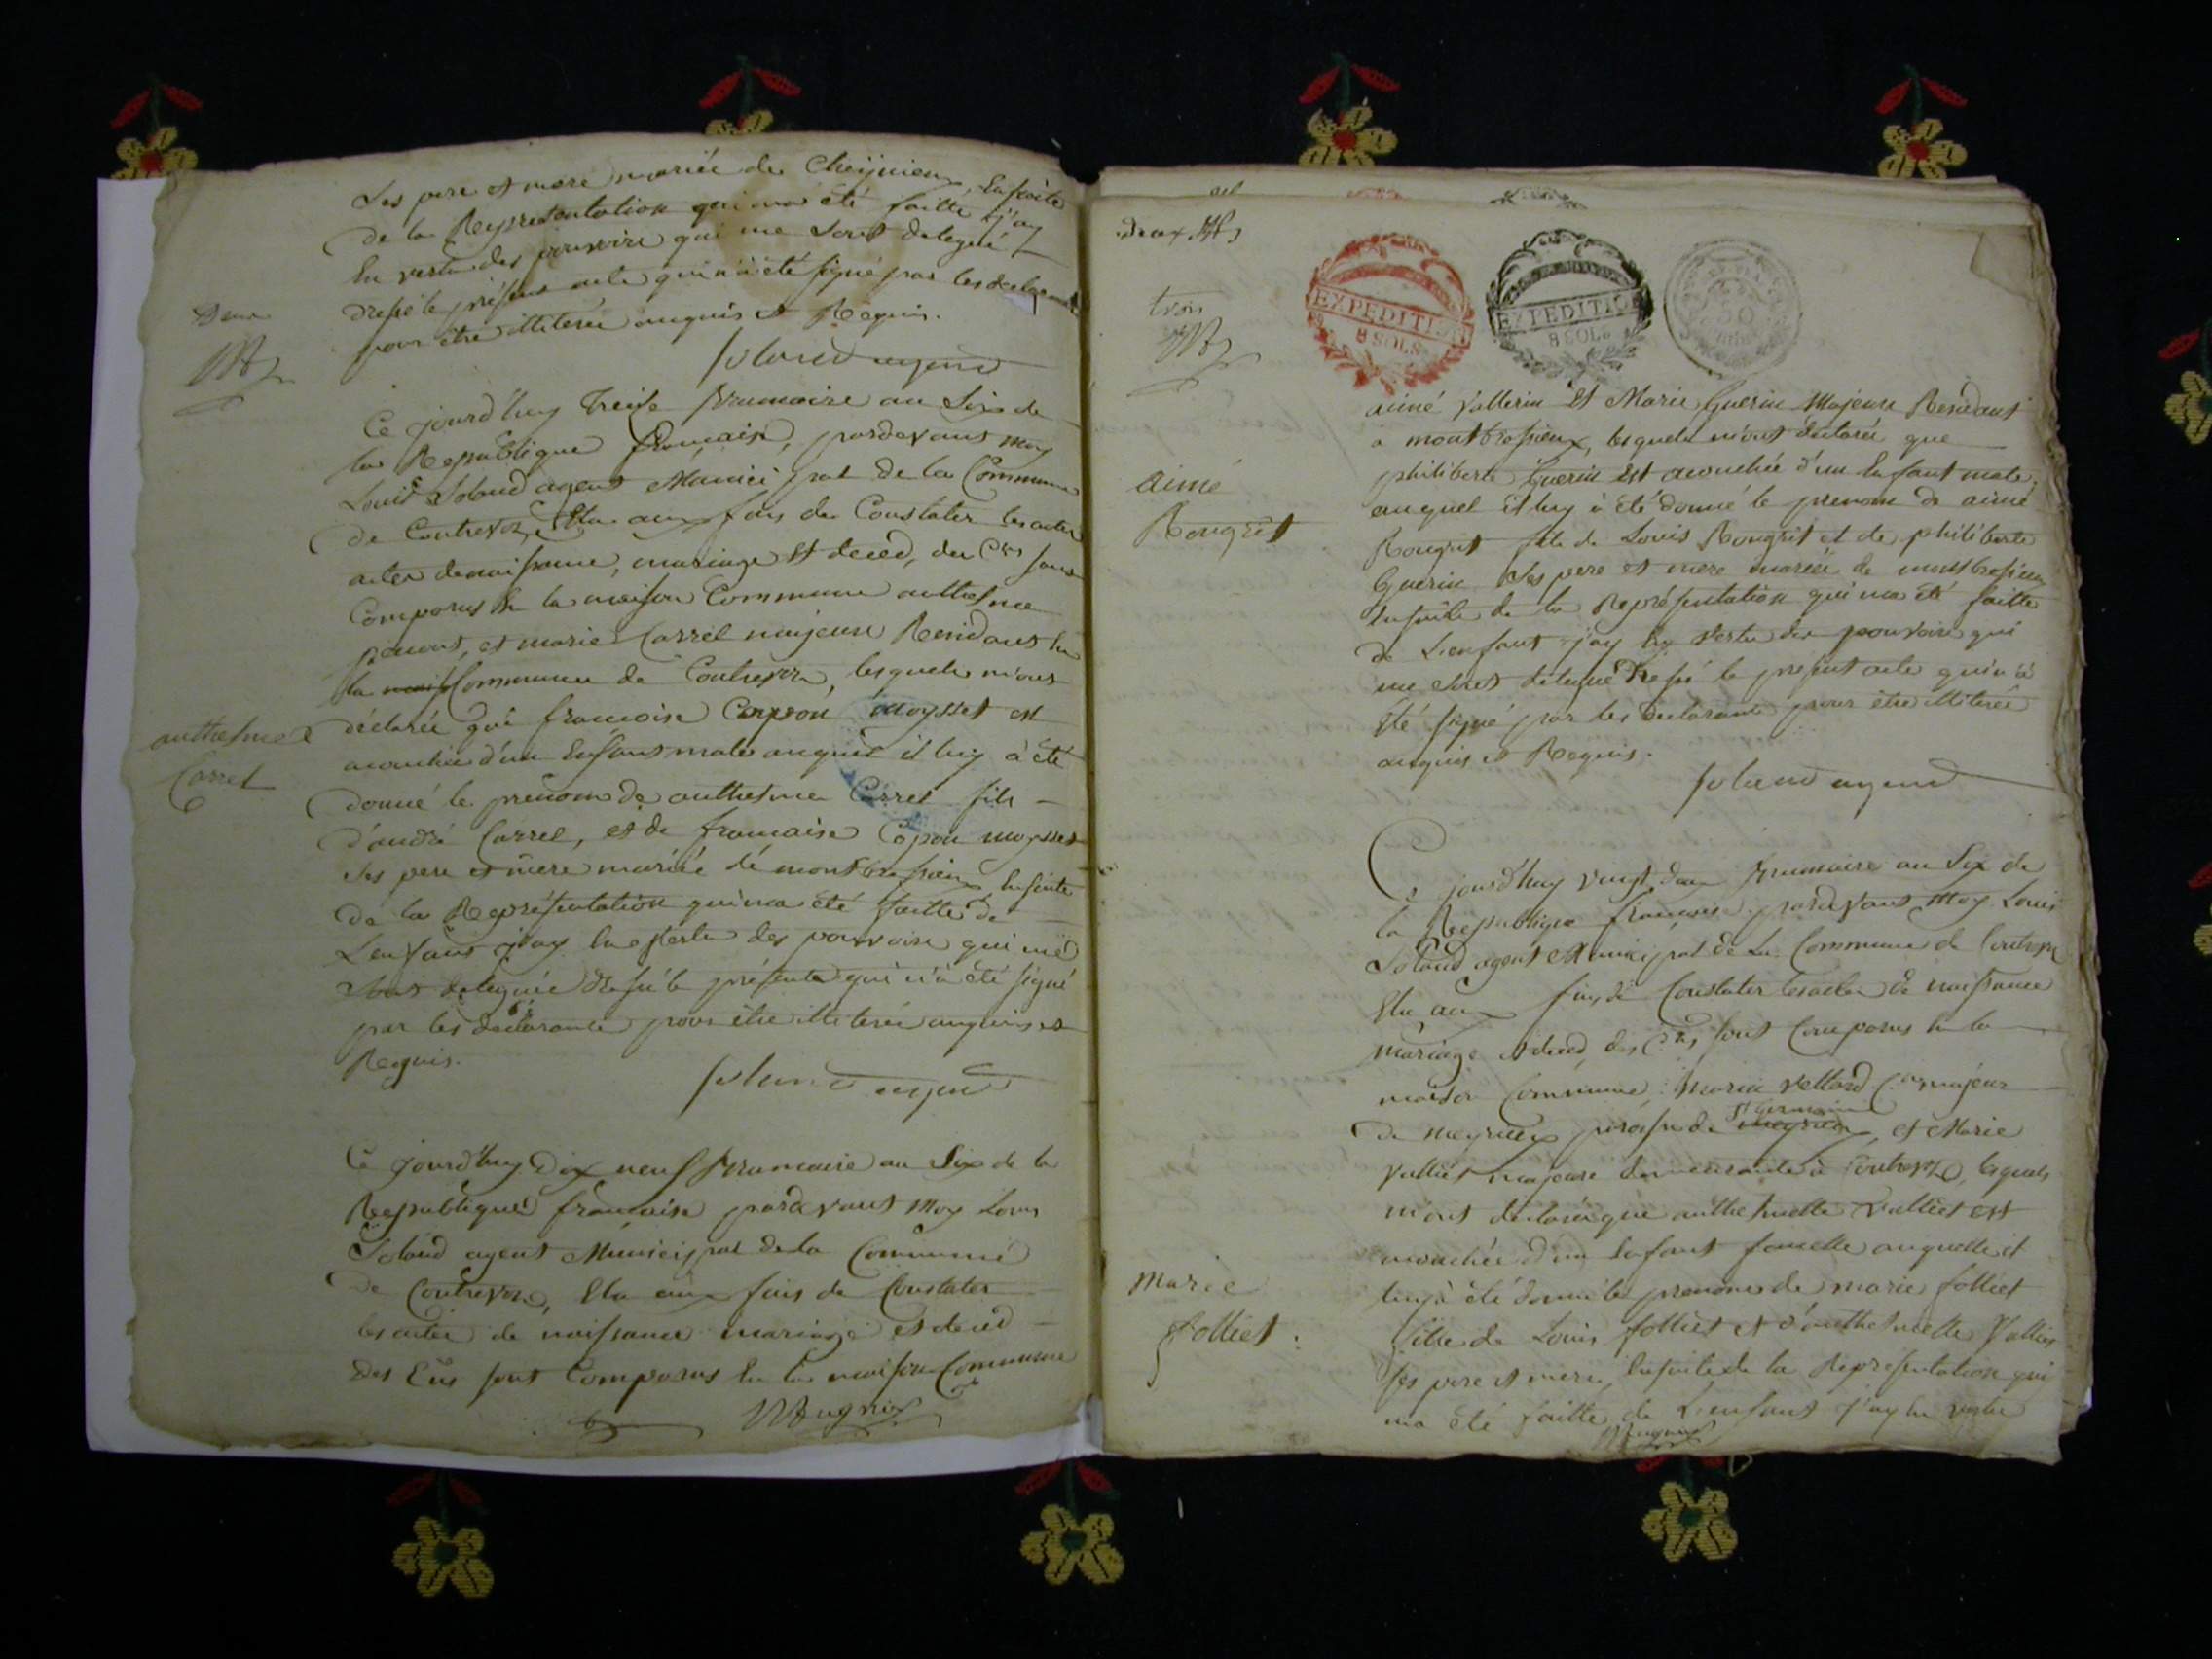 Ses pere et mere mariée de Cheignieux, Ensuite
de la Representation qui m'a été faitte j'ay
En vertu des pouvoirs qui me sont delegué
dressé le présent acte qui n'a été signé par les
pour être illiterée enquis et Requis.
Soland agend
deux
Ce jourd'huy Treize frumaire an Six de
la Republique française, pardevant moy
Louis Soland agent Municipal de la Commune
de Contrevoz, Elu aux fins de Constater les actes
actes denaissance, mariage Et deced, des Cens sont
Comparus En la maison Commune anthelme
et marie Carrel majeure Residants En
la Commune de Contrevoz, lesquels m'ont
déclarée que françoise Coppon moysset est
acouchée d'un Enfant male auquel il luy à été
donné le prénom de anthelme Carrel fils
d'andré Carrel, et de francaise Copon moysset
ses pere et mere mariée dé montbresieux, Ensuite
de la Représentation qui m'a été faitte de
L'enfant j'ay En vertu des pouvoirs qui me
sont deleguée dressé le présente qui n'à été signé
par les declarants pour être illiterée enquis et
Requis.
anthelme
Carrel
Soland agend
Ce jourd'huy Dix neuf frumaire an Six de la
Republique française pardevant moy Louis
Soland agent Municipal de la Communé
de Contrevoz, Elu aux fins de Constater
les actes de naissance mariage et deced
des Cens sont Comparus En la maison Commune
Mugnier
deux
trois
EXPEDITION
8 SOLS
EXPEDITION
8 SOLS
50
aimé Vallerin Et Marie Guerin Majeure Residants
a montbresieux, lesquels m'ont déclarée que
philiberte Guerin est acouchée d'un Enfant male
auquel il luy à été donné le prenom de aimé
Rougret fils de Louis Rougrit et de philiberte
Guerin Ses pere et mere mariée de montbresieux
Ensuite de la Représentation qui m'a été faitte
de L'enfant j'ay En vertu des pouvoirs qui
me sont delegué dressé le present acte qui n'à
Eté signé par les declarants pour être illiterée
enquis et Requis.
aimé
Rougret
Soland agend
Ce jourd'huy vingt deux frumaire an Six de
la Republique française pardevant moy Louis
Soland agent Municipal de La Commune de Contrevoz
Elu aux fins de Constater les actes de naissance
mariage et deced, des Cens sont Comparus En la
maison Commune, vettard Cen majeur
de meyrieux paroisse de St Germain, et Marie
Valliet majeure demeurante à Contrevoz, lesquels
m'ont declarée que anthelmette Valliet est
acouchée d'un Enfant femelle auquelle il
luy à été donné le prenom de marie folliet
fille de Louis folliet et d'anthelmette Valliet
Ses pere et mere, Ensuite de la Représentation qui
m'a été faitte de L'enfant j'ay En vertu
Marie
folliet
Mugnier